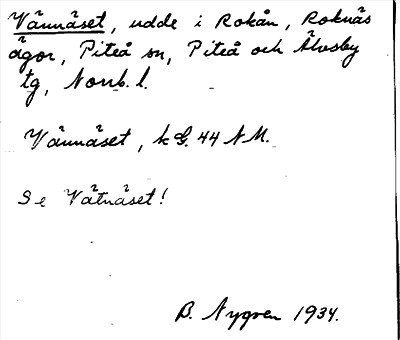 Vännäset, udde i Rokån, Roknäs
ägor, Piteå sn, Piteå och Älvsby
tg, Norrb. l.
Vännäset, k G. 44 N M.
Se Vätnäset!
B. Nygren 1934.